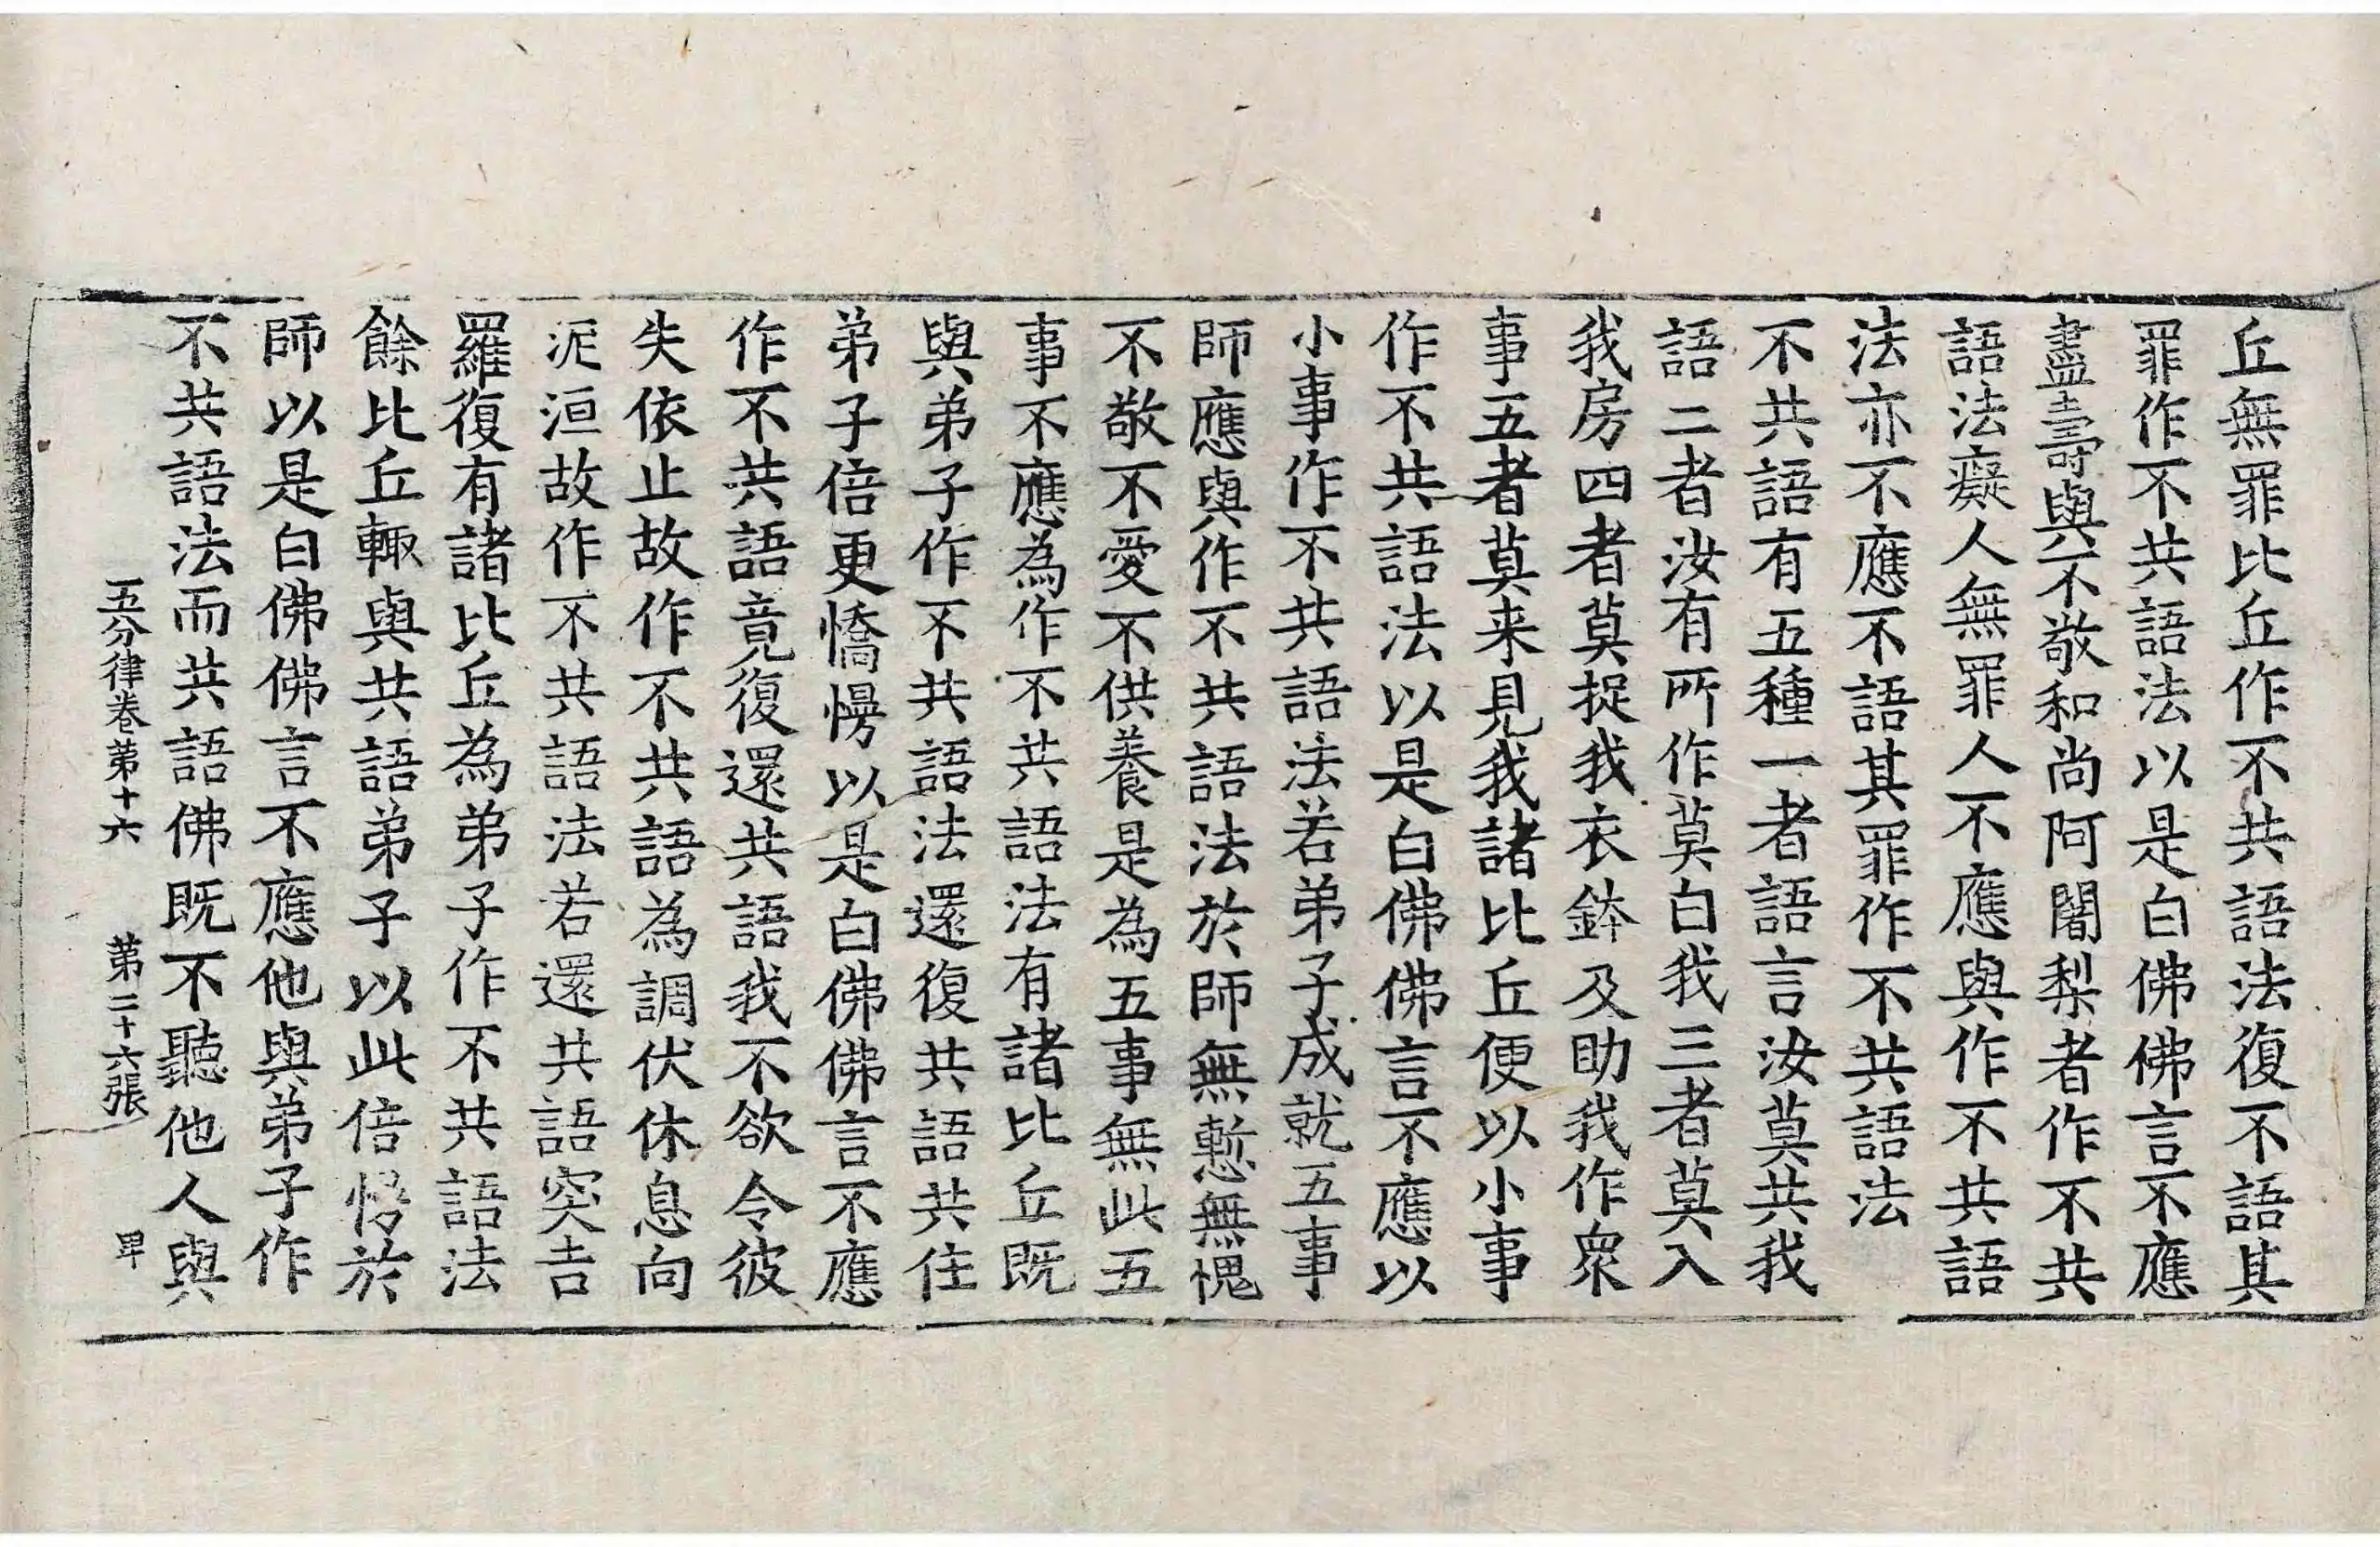 丘無罪比丘作不共語法復不語其
罪作不共語法以是白佛佛言不應
盡壽與不敬和尚阿闍梨者作不共
語法癡人無罪人不應與作不共語
法亦不應不語其罪作不共語法
不共語有五種一者語言汝莫共我
語二者汝有所作莫白我三者莫入
我房四者莫捉我衣鉢及助我作衆
事五者莫来見我諸比丘便以小事
作不共語法以是白佛佛言不應以
小事作不共語法若弟子成就五事
師應與作不共語法於師無慙無愧
不敬不愛不供養是為五事無此五
事不應為作不共語法有諸比丘既
與弟子作不共語法還復共語共住
弟子倍更憍慢以是白佛佛言不應
作不共語竟復還共語我不欲令彼
失依止故作不共語為調伏休息向
泥洹故作不共語法若還共語突吉
羅復有諸比丘為弟子作不共語法
餘比丘輙與共語弟子以此倍悕於
師以是白佛佛言不應他與弟子作
不共語法而共語佛既不聽他人與
五分律卷第十六 第二十六張